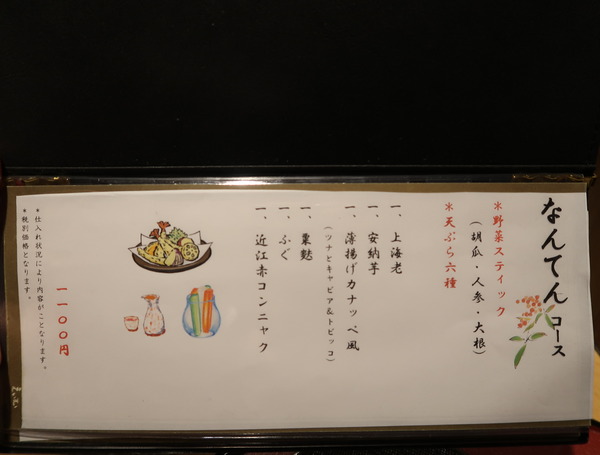 なんてんコース
＊野菜スティック
（胡瓜・人参・大根）
＊天ぷら六種
一、上海老
一、安納芋
一、薄揚げカナッペ風
（ツナとキャビア&トビッコ）
一、粟麩
一、ふぐ
一、近江赤コンニャク
一一〇〇円
＊仕入れ状況により内容がことなります。
＊税別価格となります。